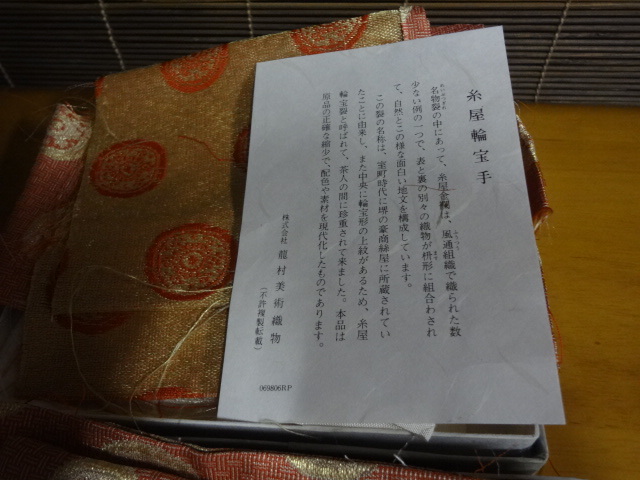 糸屋輪宝手
名物裂の中にあって、糸屋金襴は、風通組織で織られた数
少ない例の一つで、表と裏の別々の織物が枡形に組合わされ
て、自然とこの様な面白い地文を構成しています。
この裂の名称は、室町時代に堺の豪商絲屋に所蔵されてい
たことに由来し、また中央に輪宝形の上紋があるため、糸屋
輪宝裂と呼ばれて、茶人の間に珍重されて来ました。本品は
原品の正確な縮少で、配色や素材を現代化したものであります。
株式会社 龍村美術織物
（不許複製転載）
069806RP